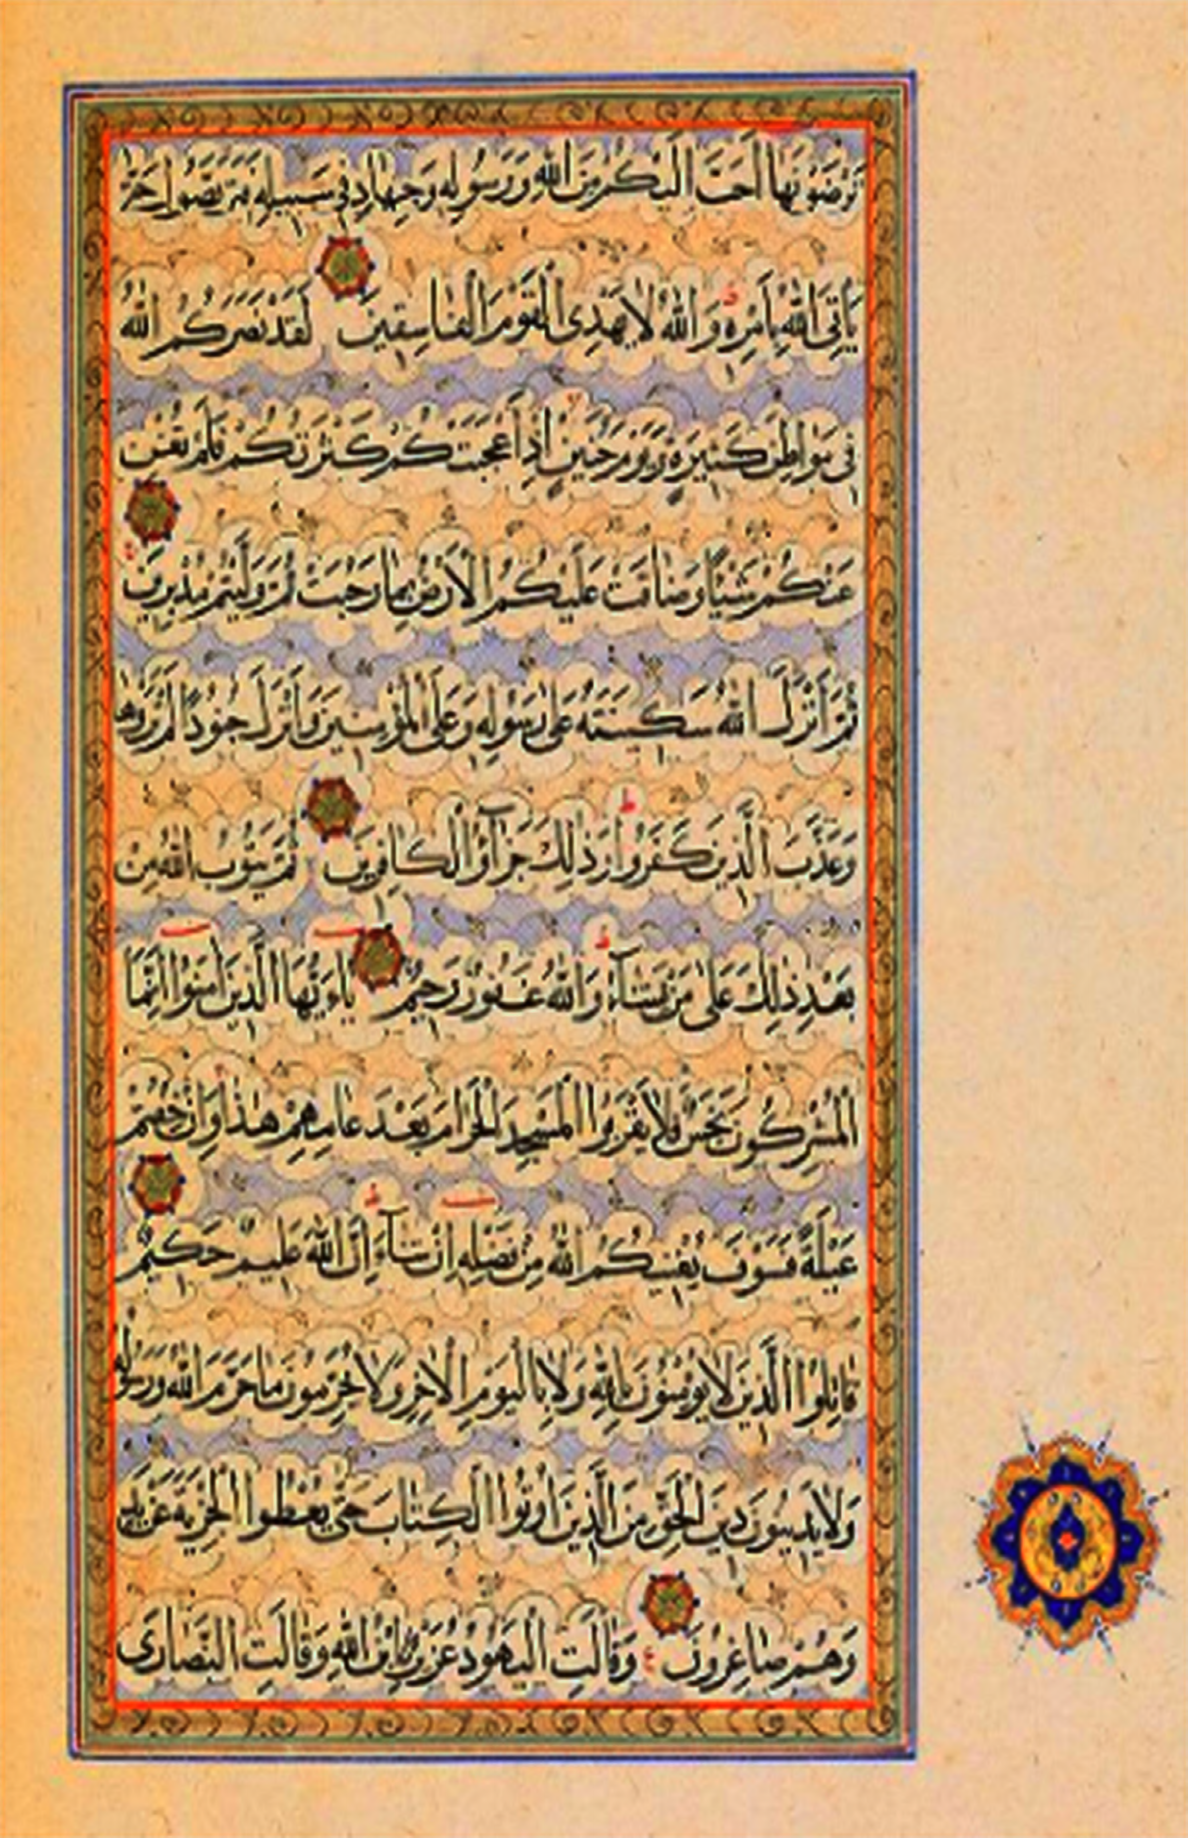 تَرْضَوْنَهَا أَحَبَّ إِلَيْكُمْ مِنَ اللهِ وَرَسُولِهِ وَجِهَادٍ فِي سَبِيلِهِ فَتَرَبَّصُوا حَتَّى
يَأْتِيَ اللهُ بِأَمْرِهِ وَاللهُ لَا يَهْدِي الْقَوْمَ الْفَاسِقِينَ لَقَدْ نَصَرَكُمُ اللهُ
فِي مَوَاطِنَ كَثِيرَةٍ وَيَوْمَ حُنَيْنٍ إِذْ أَعْجَبَتْكُمْ كَثْرَتُكُمْ فَلَمْ تُغْنِ
عَنْكُمْ شَيْئًا وَضَاقَتْ عَلَيْكُمُ الْأَرْضُ بِمَا رَحُبَتْ ثُمَّ وَلَّيْتُمْ مُدْبِرِينَ
ثُمَّ أَنْزَلَ اللهُ سَكِينَتَهُ عَلَى رَسُولِهِ وَعَلَى الْمُؤْمِنِينَ وَأَنْزَلَ جُنُودًا لَمْ تَرَوْهَا
وَعَذَّبَ الَّذِينَ كَفَرُوا وَذٰلِكَ جَزَآؤُا الْكَافِرِينَ ثُمَّ يَتُوبُ اللهُ مِنْ
بَعْدِ ذٰلِكَ عَلَى مَنْ يَشَآءُ وَاللهُ غَفُورٌ رَحِيمٌ يَاءَيُّهَا الَّذِينَ اٰمَنُوا إِنَّمَا
الْمُشْرِكُونَ نَجَسٌ فَلَا يَقْرَبُوا الْمَسْجِدَ الْحَرَامَ بَعْدَ عَامِهِمْ هٰذَا وَإِنْ خِفْتُمْ
عَيْلَةً فَسَوْفَ يُغْنِيكُمُ اللهُ مِنْ فَضْلِهِ إِنْ شَآءَ إِنَّ اللهَ عَلِيمٌ حَكِيمٌ
قَاتِلُوا الَّذِينَ لَا يُؤْمِنُونَ بِاللهِ وَلَا بِالْيَوْمِ الْاٰخِرِ وَلَا يُحَرِّمُونَ مَا حَرَّمَ اللهُ وَرَسُولُهُ
وَلَا يَدِينُونَ دِينَ الْحَقِّ مِنَ الَّذِينَ أُوتُوا الْكِتَابَ حَتَّى يُعْطُوا الْجِزْيَةَ عَنْ يَدٍ
وَهُمْ صَاغِرُونَ وَقَالَتِ الْيَهُودُ عُزَيْرٌ ابْنُ اللهِ وَقَالَتِ النَّصَارَى